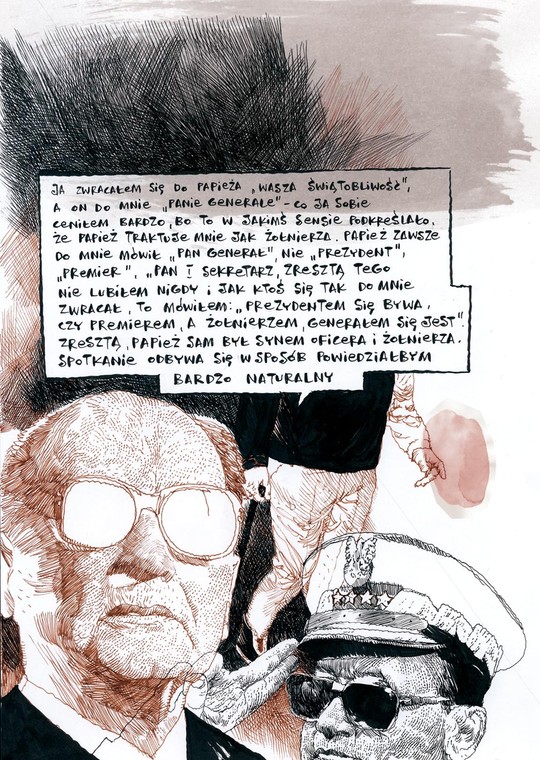 JA ZWRACAŁEM SIĘ DO PAPIEŻA „WASZA ŚWIĄTOBLIWOŚĆ",
A ON DO MNIE „PANIE GENERALE" – CO JA SOBIE
CENIŁEM BARDZO, BO TO W JAKIMŚ SENSIE PODKREŚLAŁO,
ŻE PAPIEŻ TRAKTUJE MNIE JAK ŻOŁNIERZA. PAPIEŻ ZAWSZE
DO MNIE MÓWIŁ „PAN GENERAŁ", NIE „PREZYDENT",
„PREMIER", „PAN I SEKRETARZ, ZRESZTĄ TEGO
NIE LUBIŁEM NIGDY I JAK KTOŚ SIĘ TAK DO MNIE
ZWRACAŁ, TO MÓWIŁEM: „PREZYDENTEM SIĘ BYWA,
CZY PREMIEREM, A ŻOŁNIERZEM, GENERAŁEM SIĘ JEST".
ZRESZTĄ, PAPIEŻ SAM BYŁ SYNEM OFICERA I ŻOŁNIERZA.
SPOTKANIE ODBYWA SIĘ W SPOSÓB POWIEDZIAŁBYM
BARDZO NATURALNY